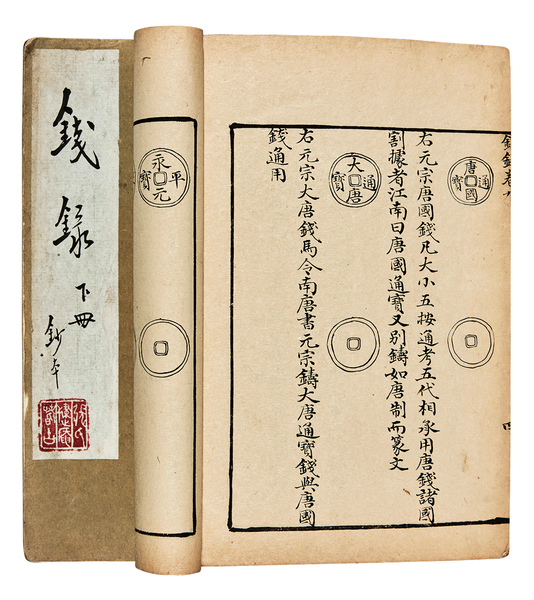 錢錄
下冊
鈔本
唐國通寶
右元宗唐國錢凡大小五按通考五代相承用唐錢諸國
割據者江南曰唐國通寶又別鑄如唐制而篆文
大唐通寶
右元宗大唐錢馬令南唐書元宗鑄大唐通寶錢與唐國
錢通用
永平元寶